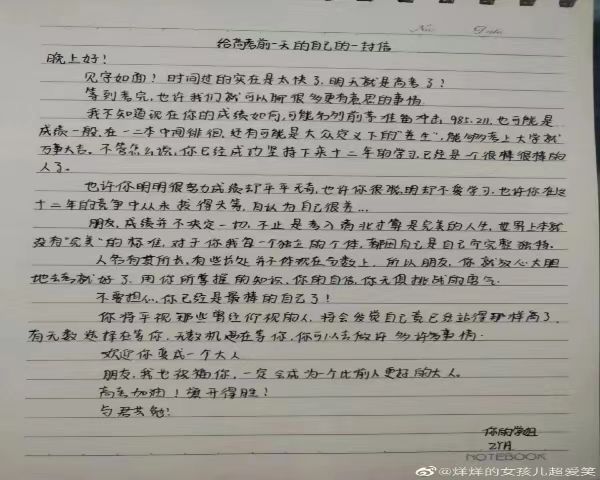 No.
Date
给高考前一天的自己的一封信
晚上好!
见字如面!时间过的实在是太快了,明天就是高考了!
等到考完,也许我们就可以聊很多更有意思的事情.
我不知道现在你的成绩如何,可能名列前茅准备冲击985.211,也可能是
成绩一般,在一二本中间徘徊,还有可能是大众定义下的“差生”,能够考上大学就
万事大吉。不管怎么说,你已经成功坚持下来十二年的学习,已经是个很棒很棒的
人了。
也许你明明很努力成绩却平平无奇,也许你很聪明却不爱学习,也许你在这
十二年的竞争中从未获得头筹,自认为自己很差…
朋友,成绩并不决定一切,不止是考入南北才算是完美的人生,世界上本就
没有“完美”的标准,对于你我每一个独立的个体,都因自己是自己而完整独特.
人各有其所长,有些长处并不体现在分数上,所以朋友,你就放心大胆
地去考就好了.用你所掌握的知识,你的自信,你无惧挑战的勇气.
不要担心,你已经是最棒的自己了!
你将平视那些曾经仰视的人,将会发觉自己竟已经站得那样高了,
有无数选择在等你,无数机遇在等你,你可以去做许多许多事情.
欢迎你变成一个大人
朋友,我也祝福你,一定会成为一个比前人更好的大人。
高考加油!旗开得胜!
与君共勉!
你的学姐
NOTEBOOK
@烊烊的女孩儿超爱笑